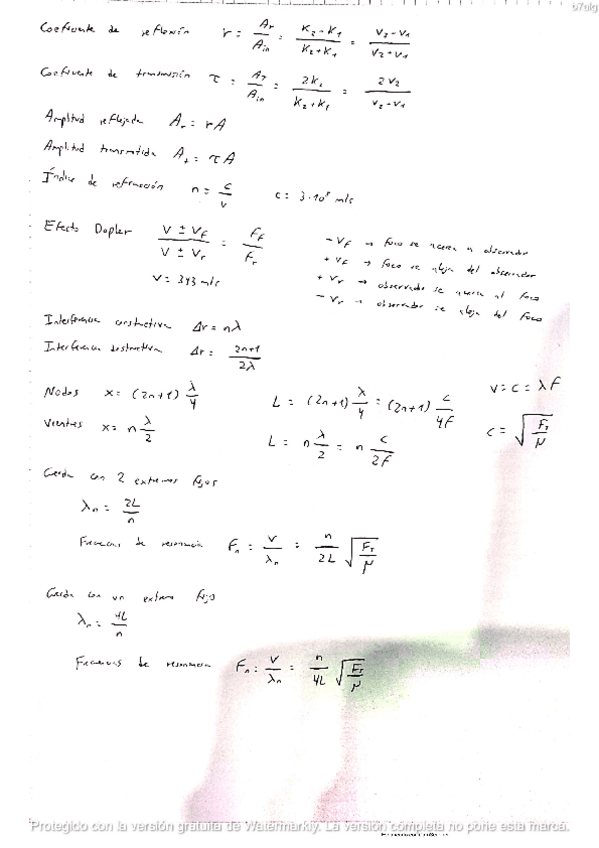 b7alg
Coeficiente de reflexión r = Ar/Ain = (K2-K1)/(K2+K1) = (v2-v1)/(v2+v1)
Coeficiente de transmisión τ = AT/Ain = 2K2/(K2+K1) = 2v2/(v2-v1)
Amplitud reflejada Ar = rA
Amplitud transmitida At = τA
Índice de refracción n = c/v c = 3·10⁸ m/s
Efecto Dopler (V ± VF)/(V ± Vr) = FF/Fr
V = 343 m/s
- VF → foco se acerca a observador
+ VF → foco se aleja del observador
+ Vr → observador se acerca al foco
- Vr → observador se aleja del foco
Interferencia constructiva Δr = nλ
Interferencia destructiva Δr = (2n+1)/2λ
Nodos x = (2n+1) λ/4 L = (2n+1) λ/4 = (2n+1) c/4F V = c = λF
Vientres x = n λ/2 L = n λ/2 = n c/2F c = √(FT/μ)
Cuerda con 2 extremos fijos
λn = 2L/n
Frecuencias de resonancia Fn = V/λn = n/2L √(FT/μ)
Cuerda con un extremo fijo
λn = 4L/n
Frecuencias de resonancia Fn = V/λn = n/4L √(FT/μ)
Protegido con la versión gratuita de Watermarkly. La versión completa no pone esta marca.